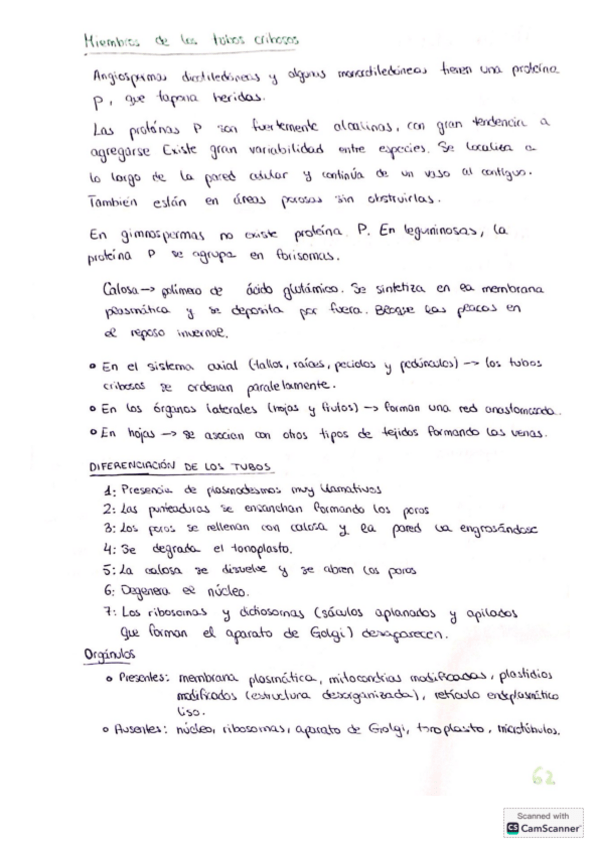 Miembros de los tubos cribosos
Angiospermas dicotiledóneas y algunas monocotiledóneas tienen una proteína
P, que tapona heridas.
Las proteínas P son fuertemente alcalinas, con gran tendencia a
agregarse Existe gran variabilidad entre especies. Se localiza a
lo largo de la pared celular y continúa de un vaso al contiguo.
También están en áreas porosas sin obstruirlas.
En gimnospermas no existe proteína P. En leguminosas, la
proteína P se agrupa en forisomas.
Calosa → polímero de ácido glutámico. Se sintetiza en la membrana
plasmática y se deposita por fuera. Bloque las placas en
el reposo invernal.
• En el sistema axial (tallos, raíces, peciolos y pedúnculos) → los tubos
cribosos se ordenan paralelamente.
• En los órganos laterales (hojas y frutos) → forman una red anastomosada.
• En hojas → se asocian con otros tipos de tejidos formando las venas.
DIFERENCIACIÓN DE LOS TUBOS
1: Presencia de plasmodesmos muy llamativos
2: Las punteaduras se ensanchan formando los poros
3: Los poros se rellenan con calosa y la pared va engrosándose
4: Se degrada el tonoplasto.
5: La calosa se disuelve y se abren los poros
6: Degenera el núcleo.
7: Los ribosomas y dictiosomas (sáculos aplanados y apilados
que forman el aparato de Golgi) desaparecen.
Orgánulos
• Presentes: membrana plasmática, mitocondrias modificadas, plastidios
modificados (estructura desorganizada), retículo endoplasmático
liso.
• Ausentes: núcleo, ribosomas, aparato de Golgi, tonoplasto, microtúbulos.
62
Scanned with
CS CamScanner